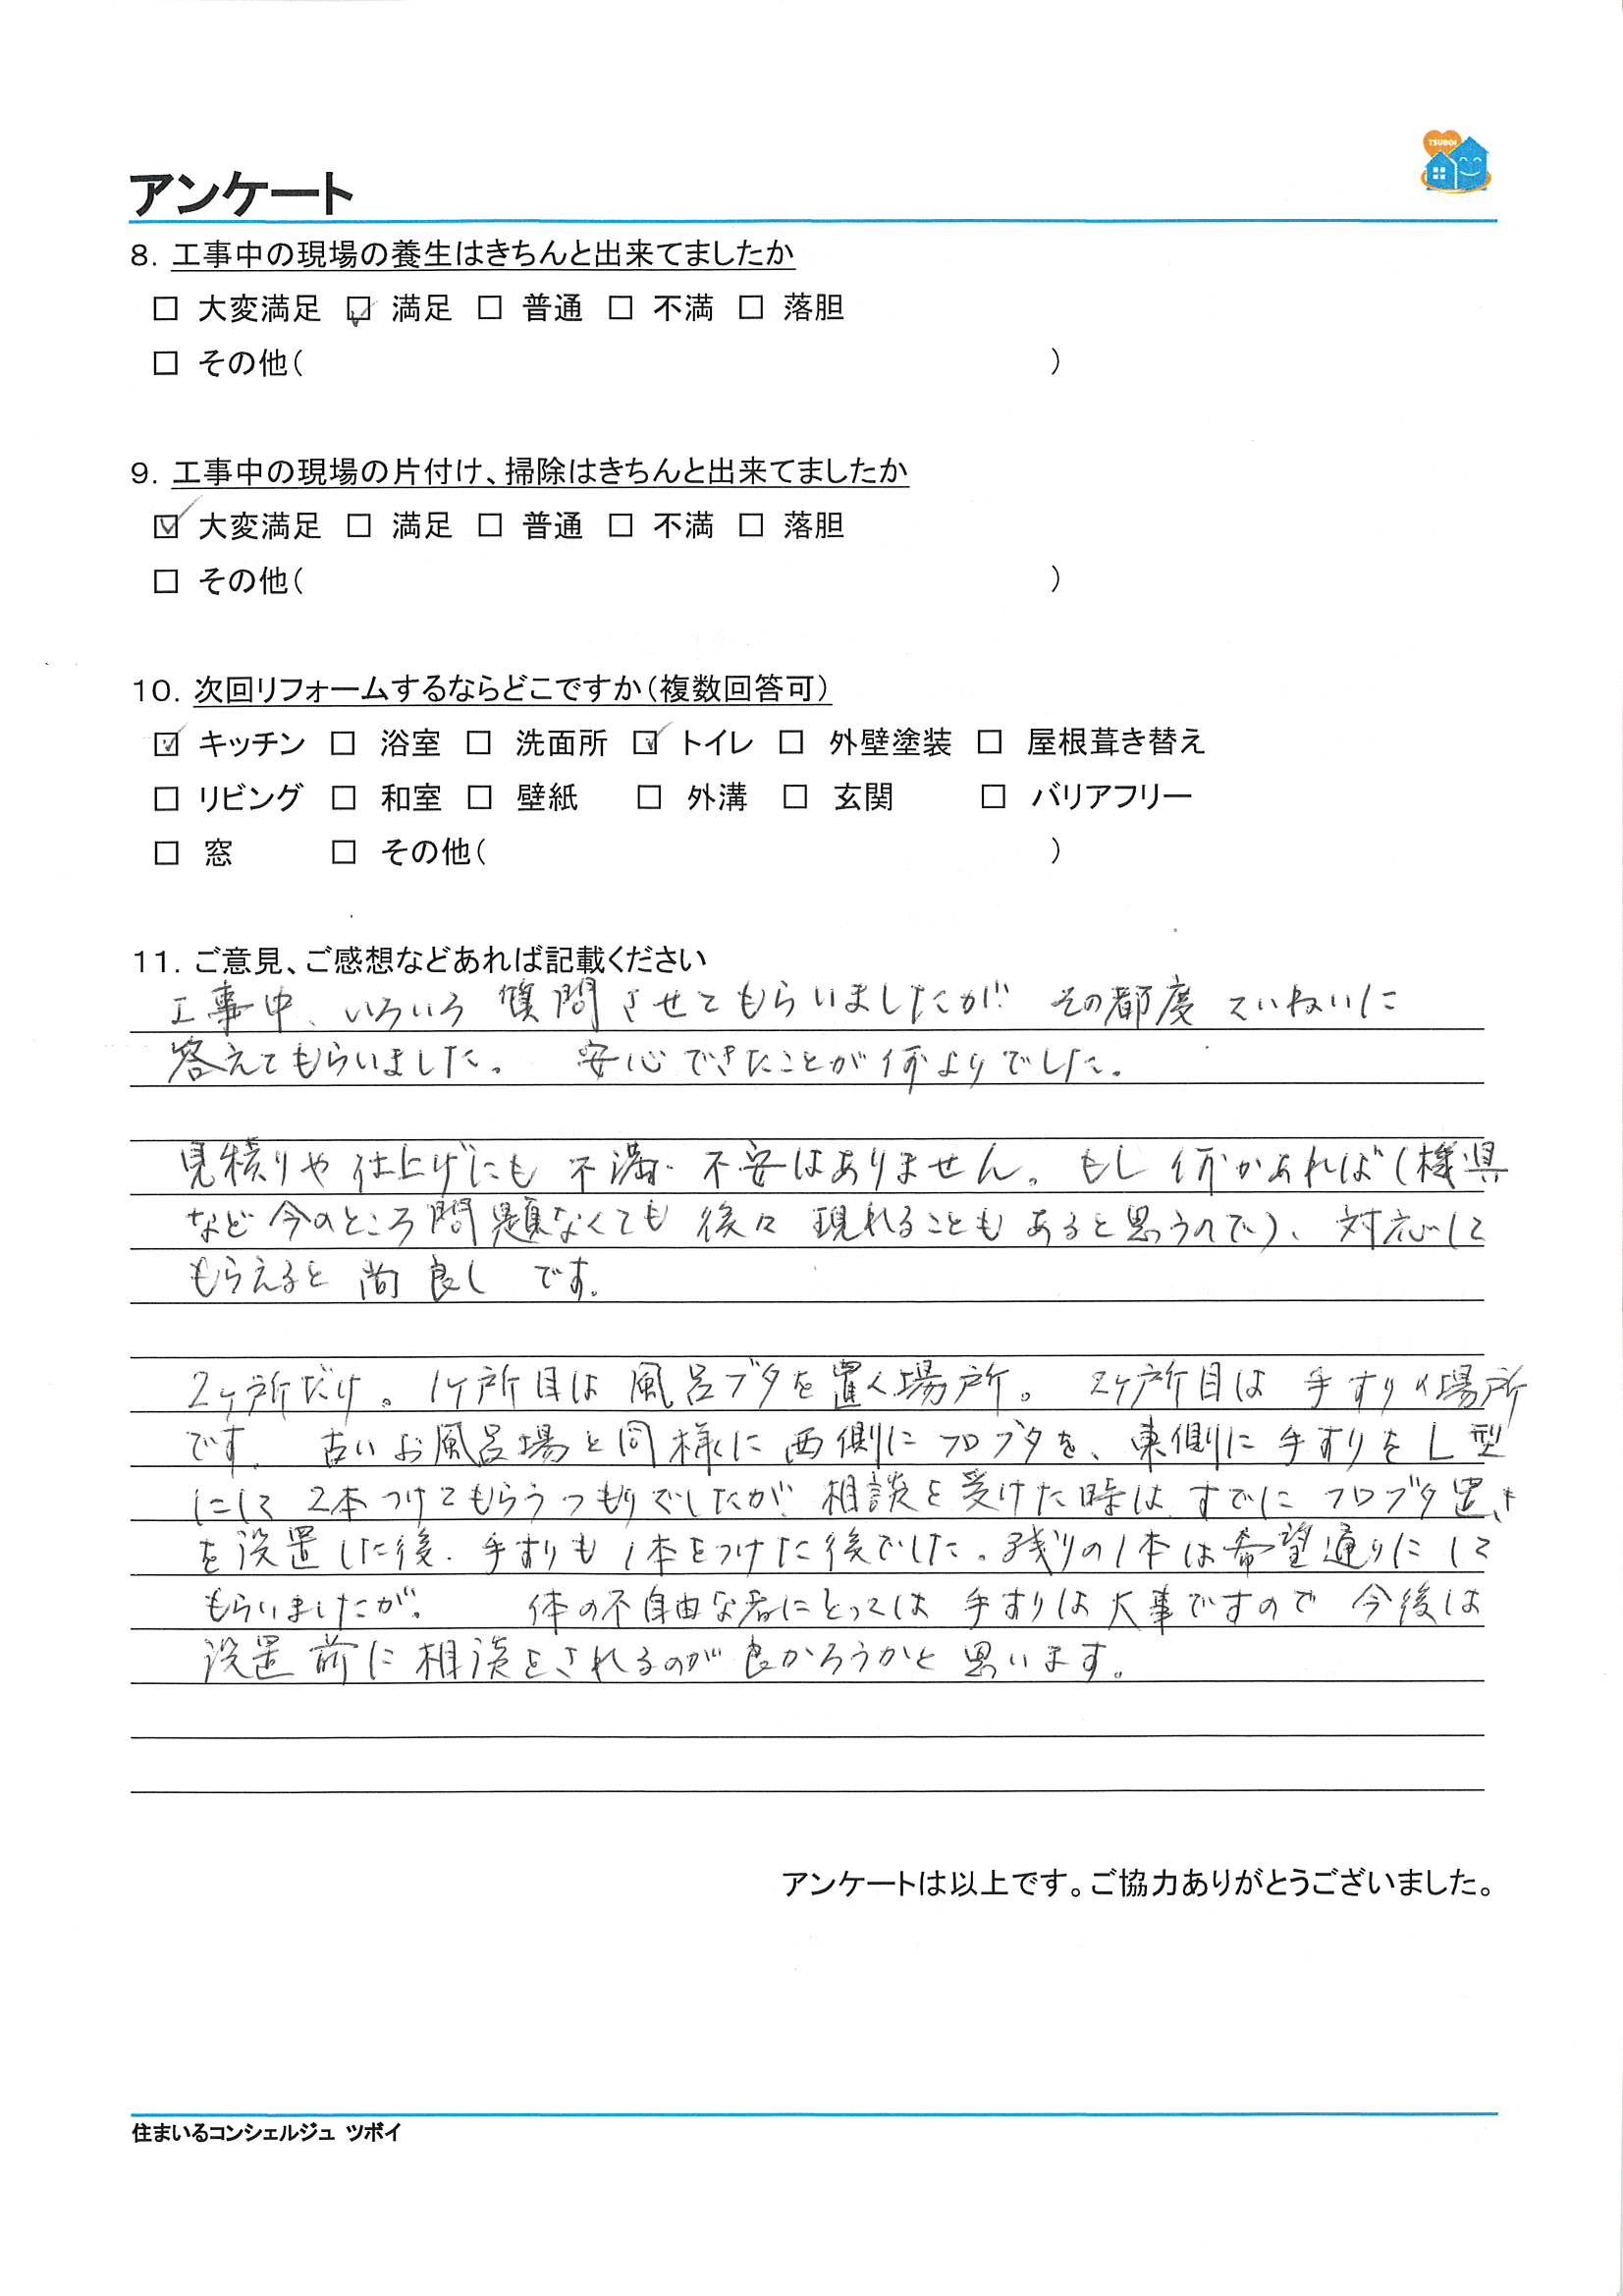 TSUBOI
アンケート
8. 工事中の現場の養生はきちんと出来てましたか
□ 大変満足 ☑ 満足 □ 普通 □ 不満 □ 落胆
□ その他( )
9. 工事中の現場の片付け、掃除はきちんと出来てましたか
☑ 大変満足 □ 満足 □ 普通 □ 不満 □ 落胆
□ その他( )
10. 次回リフォームするならどこですか(複数回答可)
☑ キッチン □ 浴室 □ 洗面所 ☑ トイレ □ 外壁塗装 □ 屋根葺き替え
□ リビング □ 和室 □ 壁紙 □ 外溝 □ 玄関 □ バリアフリー
□ 窓 □ その他( )
11. ご意見、ご感想などあれば記載ください
工事中、いろいろ質問させてもらいましたが その都度 ていねいに
答えてもらいました。 安心できたことが何よりでした。
見積りや仕上げにも 不満・不安はありません。もし何かあれば(機具
など今のところ問題なくても後々 現れることもあると思うので)、対応して
もらえると 尚良し です。
2ケ所だけ。1ケ所目は風呂ブタを置く場所。 2ケ所目は手すりの場所
です。 古いお風呂場と同様に西側にフロブタを、東側に手すりをL型
にして2本つけてもらうつもりでしたが 相談を受けた時は すでにフロブタ置き
を設置した後. 手すりも1本をつけた後でした。残りの1本は希望通りにして
もらいましたが。 体の不自由な者にとっては手すりは大事ですので 今後は
設置前に相談をされるのが良かろうかと思います。
アンケートは以上です。ご協力ありがとうございました。
住まいるコンシェルジュ ツボイ